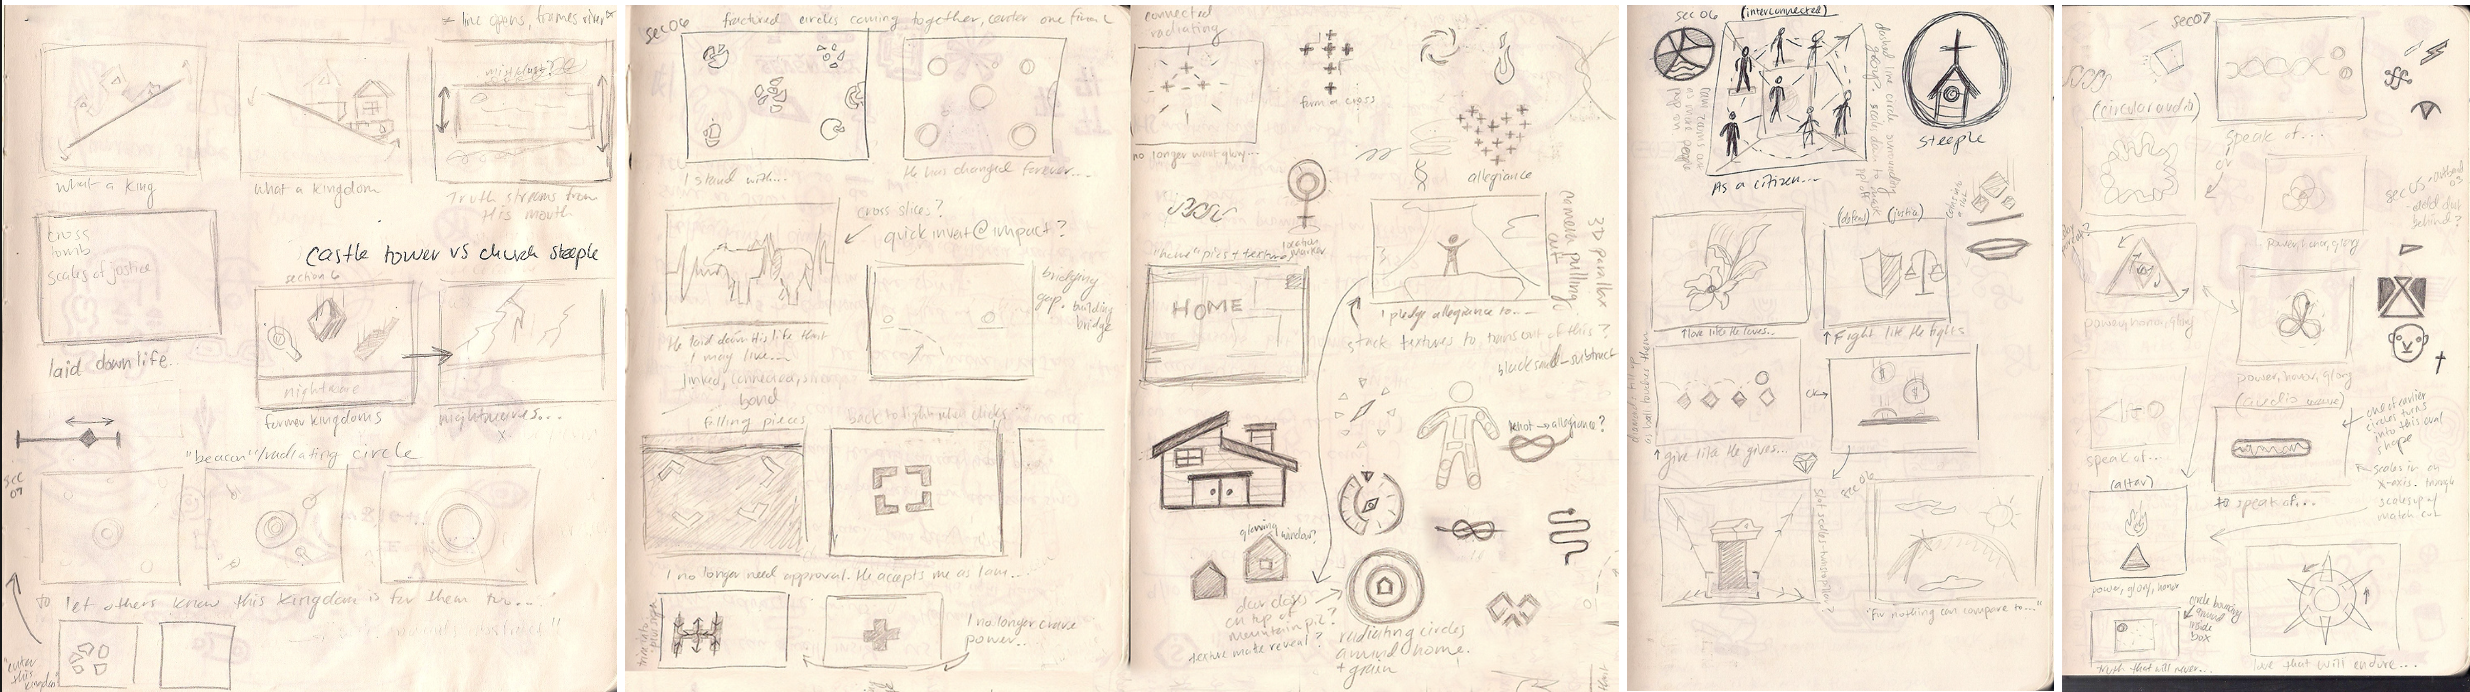 * line opens, frames river *
what a king
what a kingdom
Truth streams from
His mouth
cross
tomb
scales of justice
laid down life...
castle tower vs church steeple
section 6
nightmare
former kingdoms
nightmares...
"beacon"/radiating circle
sec
07
to let others know this kingdom is for them too...
"enter
this
kingdom"
sec 06
fractured circles coming together, center one first
I stand with...
He has changed forever...
cross slices?
quick invert @ impact?
He laid down His life that
I may live...
linked, connected,
bond
bridging
gap. building
bridge
falling pieces
back to light
clicks...
I no longer need approval. He accepts me as I am...
I no longer crave
power...
connected
radiating
no longer what glory...
form a cross
allegiance
location
marker
pics + texture
HOME
3D parallax
camera pulling
out
I pledge allegiance to...
stack textures to trans out of this?
black and - subtract
knot → allegiance?
glowing
window?
door closes
on top of
mountain pic?
texture matte reveal?
radiating circles
around home.
+ grain
sec 06
(interconnected)
As a citizen...
steeple
dashed line circle surrounding
(defend)
(justice)
↑ love like He loves...
↑ Fight like He fights
↑ give like He gives...
OR →
sec 06
"For nothing can compare to..."
sec 07
(circular audio)
or
speak of...
power, honor, glory
power, honor, glory
speak of...
power, honor, glory
(audio wave)
one of earlier
circles turns
into this oval
shape
scales in on
x-axis. triangle
scales up of
match cut
to speak of...
(altar)
power, glory, honor
circle bouncing
around
inside
box
truth that will never...
love that will endure...